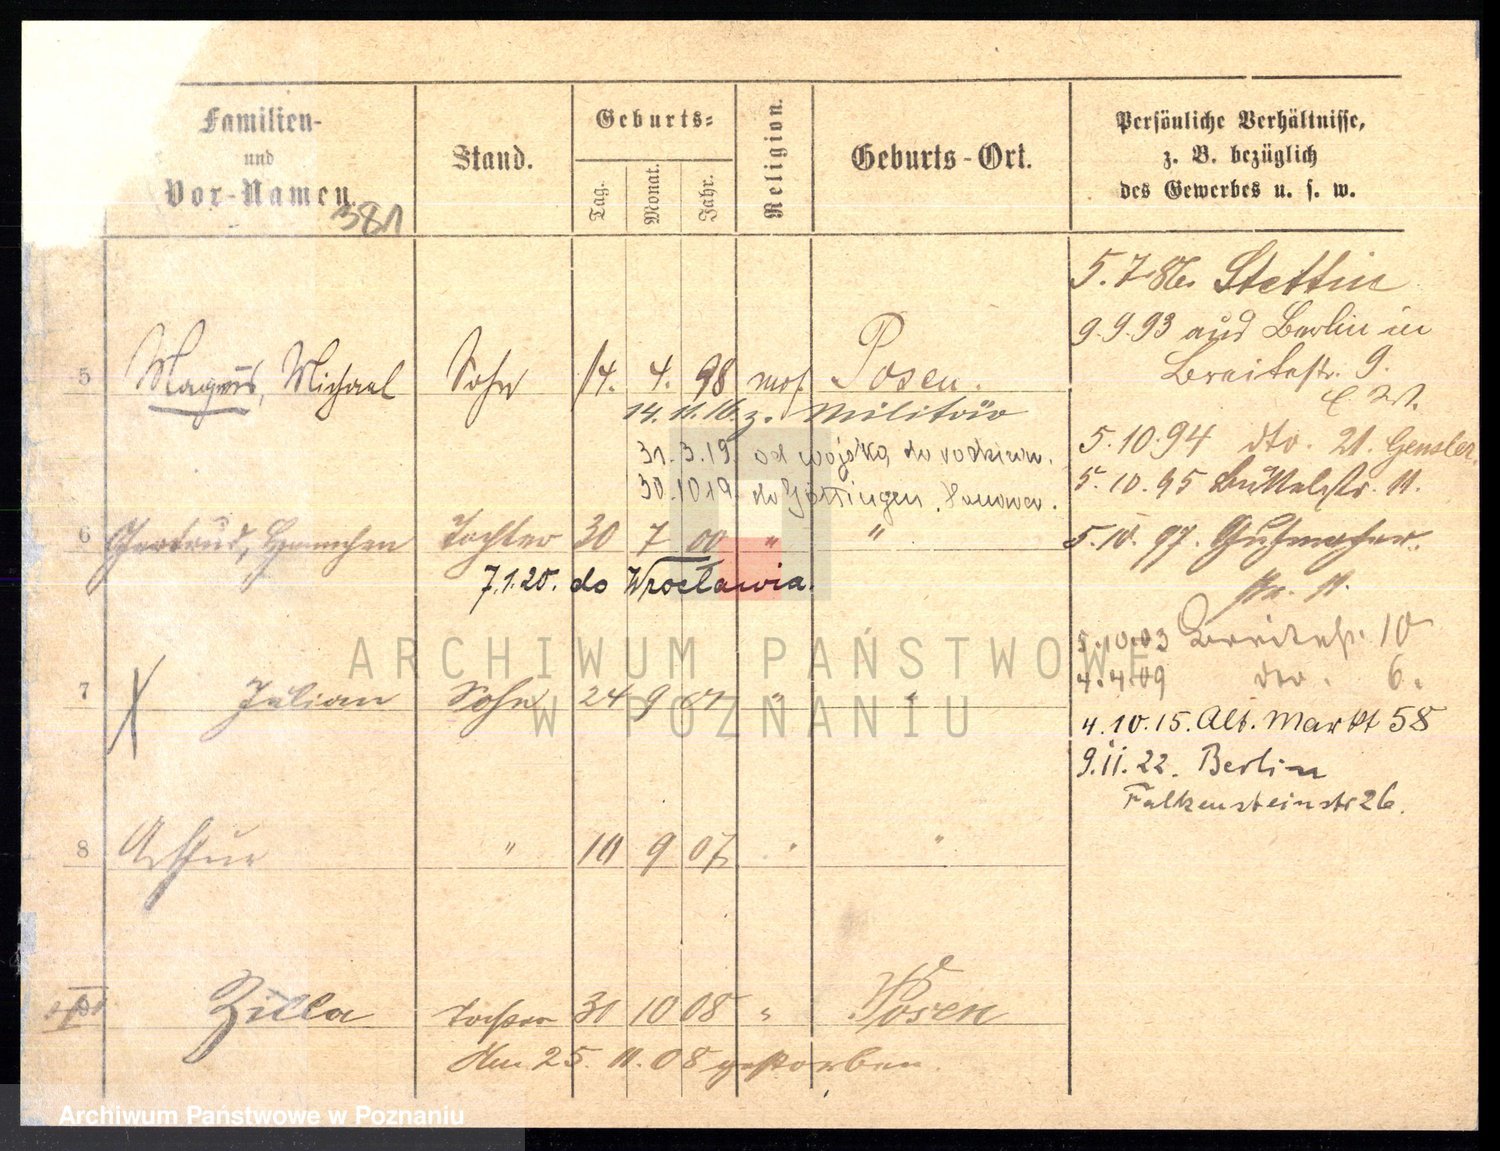 Familien-
und
Vor-Namen.
381
Stand.
Geburts-
Tag.
Monat.
Jahr.
Religion.
Geburts-Ort.
Persönliche Verhältnisse,
z. B. bezüglich
des Gewerbes u. s. w.
5 Magnus, Michael Sohn 14. 4. 98 mos. Posen.
14. 11. 16. z. Militär
31. 3. 19. od wojska do rodziców.
30. 10 19. do Göttingen. Hanower.
6 Gertrud, Hannchen Tochter 30 7 00 " "
7.1.20. do Wrocławia.
7 Julian Sohn 24 9 " "
8 Arthur " 10 9 07 " "
Zilla Tochter 30 10 08 " Posen
Am 25. 11. 08 gestorben.
5. 7. 86. Stettin
9. 9. 93 aus Berlin in
Breitestr. 9.
5. 10. 94 dto. 21.
5. 10. 95 Büttelstr. 11.
5. 10. 97.
str. 11.
5. 10. 03 Breitestr. 10
4. 4. 09 dto. 6.
4. 10. 15. Alt. Markt 58
9. 11. 22. Berlin
Falkensteinstr 26.
ARCHIWUM PAŃSTWOWE
W POZNANIU
Archiwum Państwowe w Poznaniu